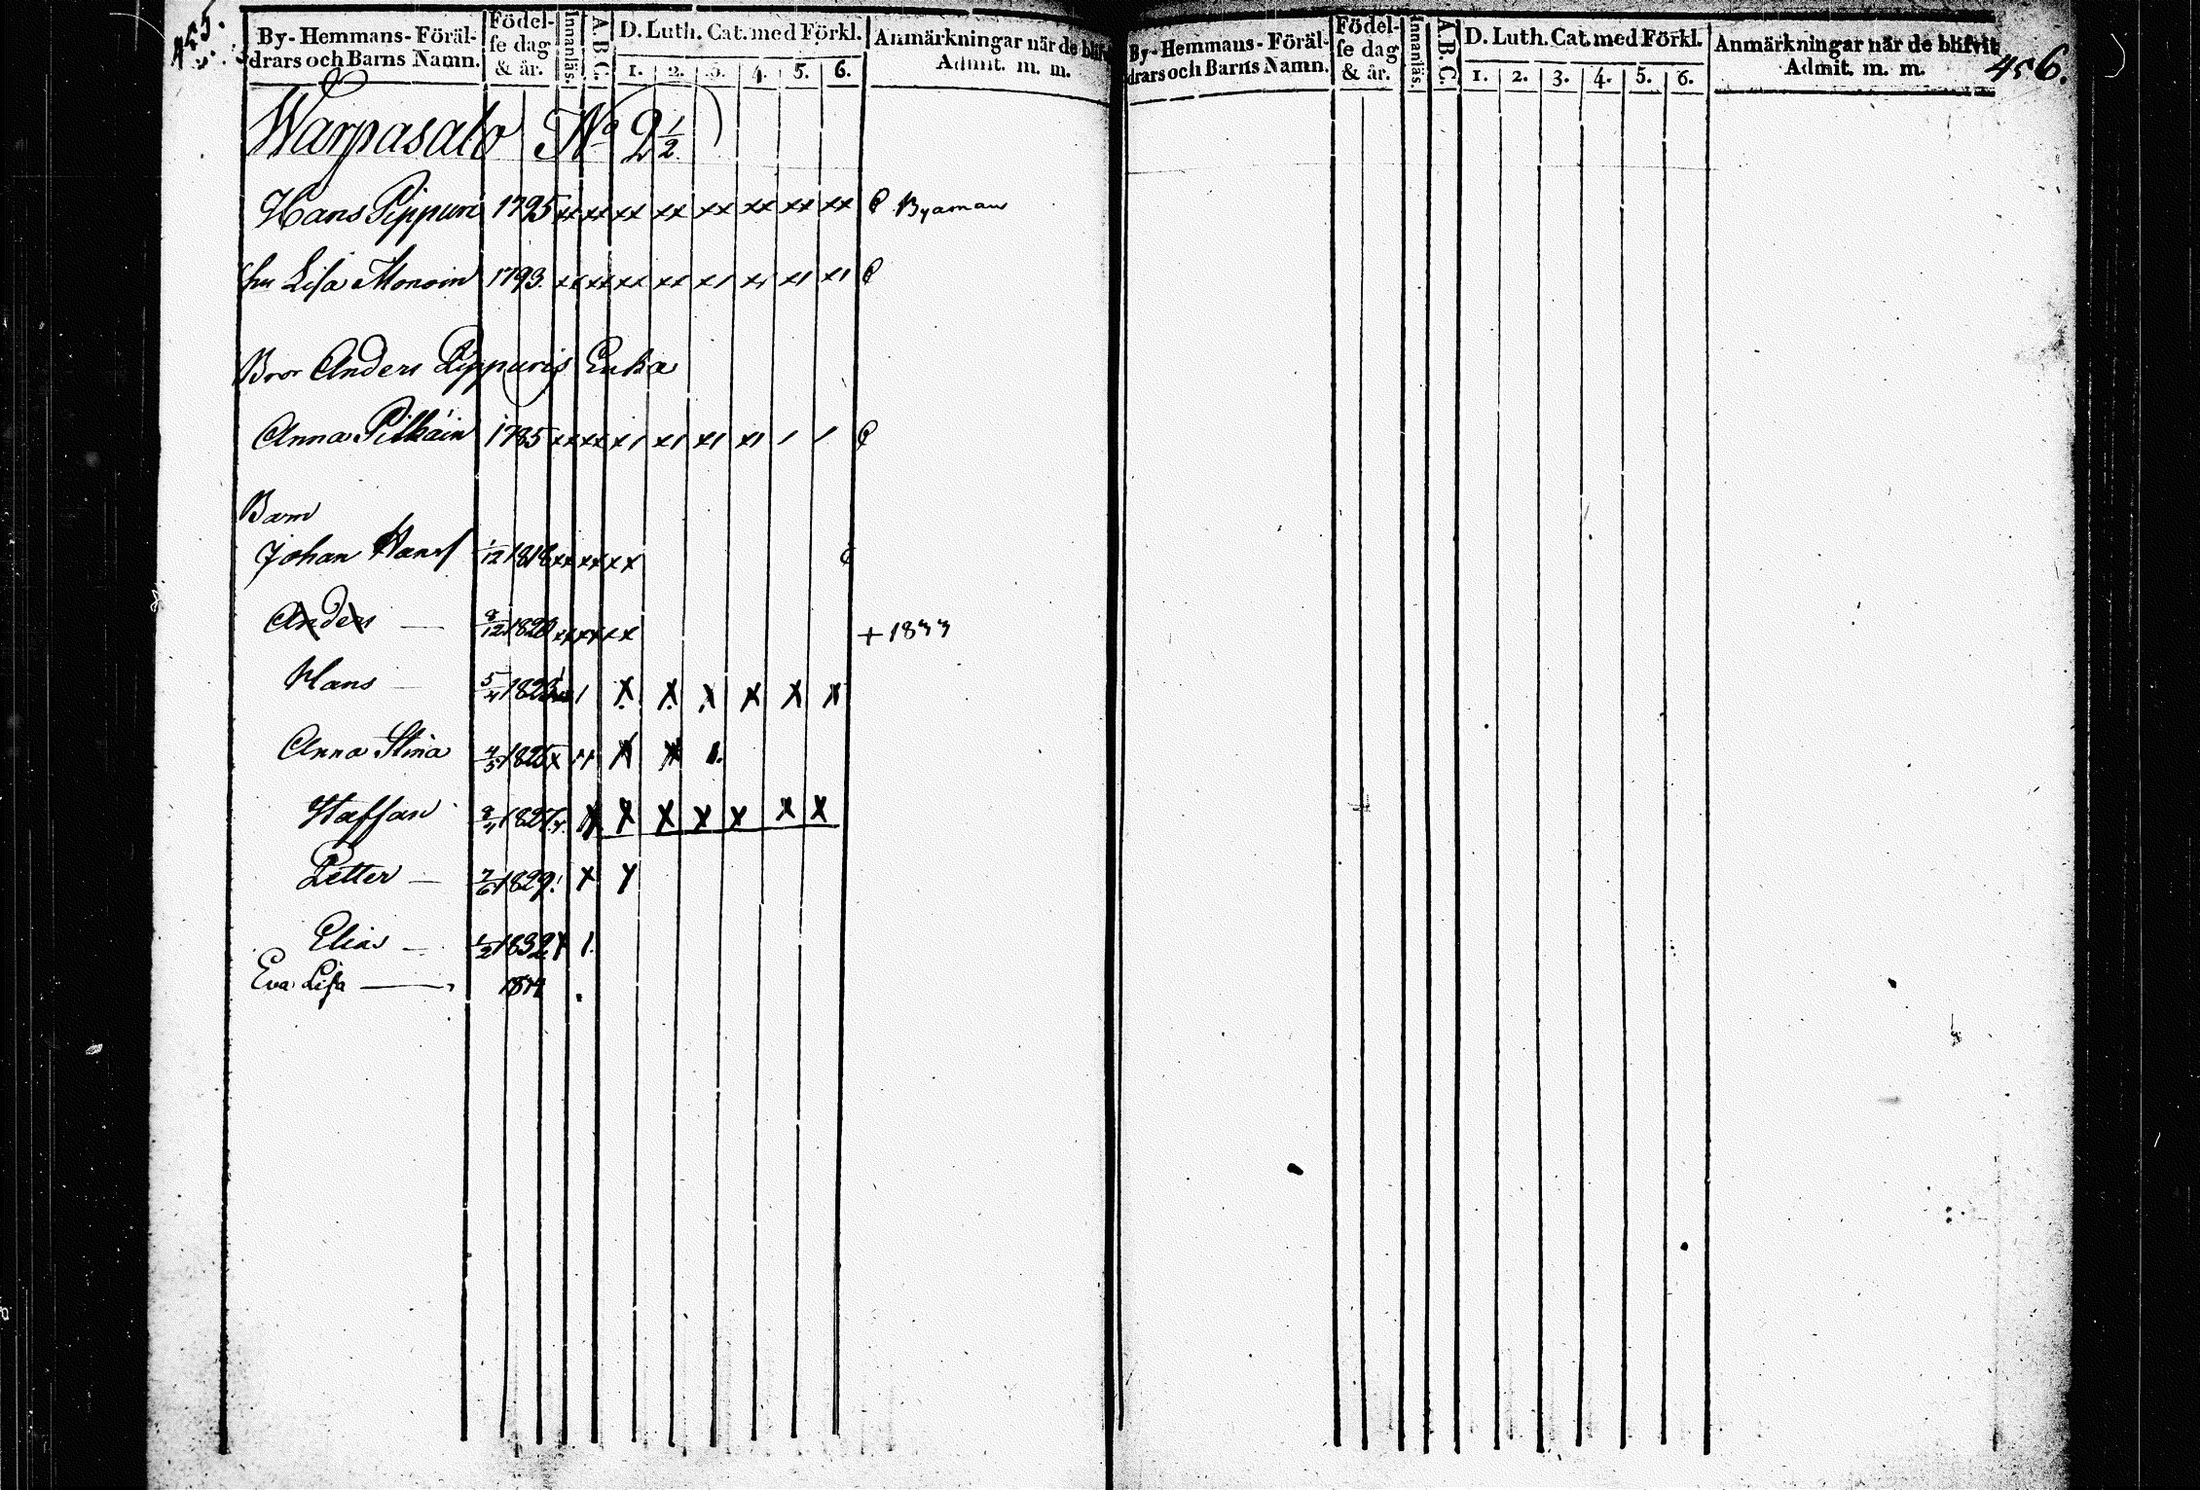 455.
By- Hemmans- Föräl-
drars och Barns Namn.
Födel-
se dag
& år.
Innanläs.
A. B. C.
D. Luth. Cat. med Förkl.
1. 2. 3. 4. 5. 6.
Anmärkningar när de blif
Admit. m. m.
Warpasalo No 2 1/2
Hans Pippuri 1795 xx xx xx xx xx xx xx xx Byaman
hu Lisa Mononen 1793. xx xx xx xx x1 x1 x1 x1
Bror Anders Pippuris Enka
Anna Pitkäin 1785 xx xx x1 x1 x1 x1 1 1
Barn
Johan Hanss 1/12 1818 xx xx xx
Anders — 9/12 1820 xx xx xx + 1833
Hans — 5/4 1823 1 x x x x x x
Anna Stina 4/5 1825 x x x
Staffan 9/4 1827 x x x x x x x
Petter — 7/6 1829 x x
Elias — 1/2 1832 x 1.
Eva Lisa — 18
By- Hemmans- Föräl-
drars och Barns Namn.
Födel-
se dag
& år.
Innanläs.
A. B. C.
D. Luth. Cat. med Förkl.
1. 2. 3. 4. 5. 6.
Anmärkningar när de blifvit
Admit. m. m.
456.